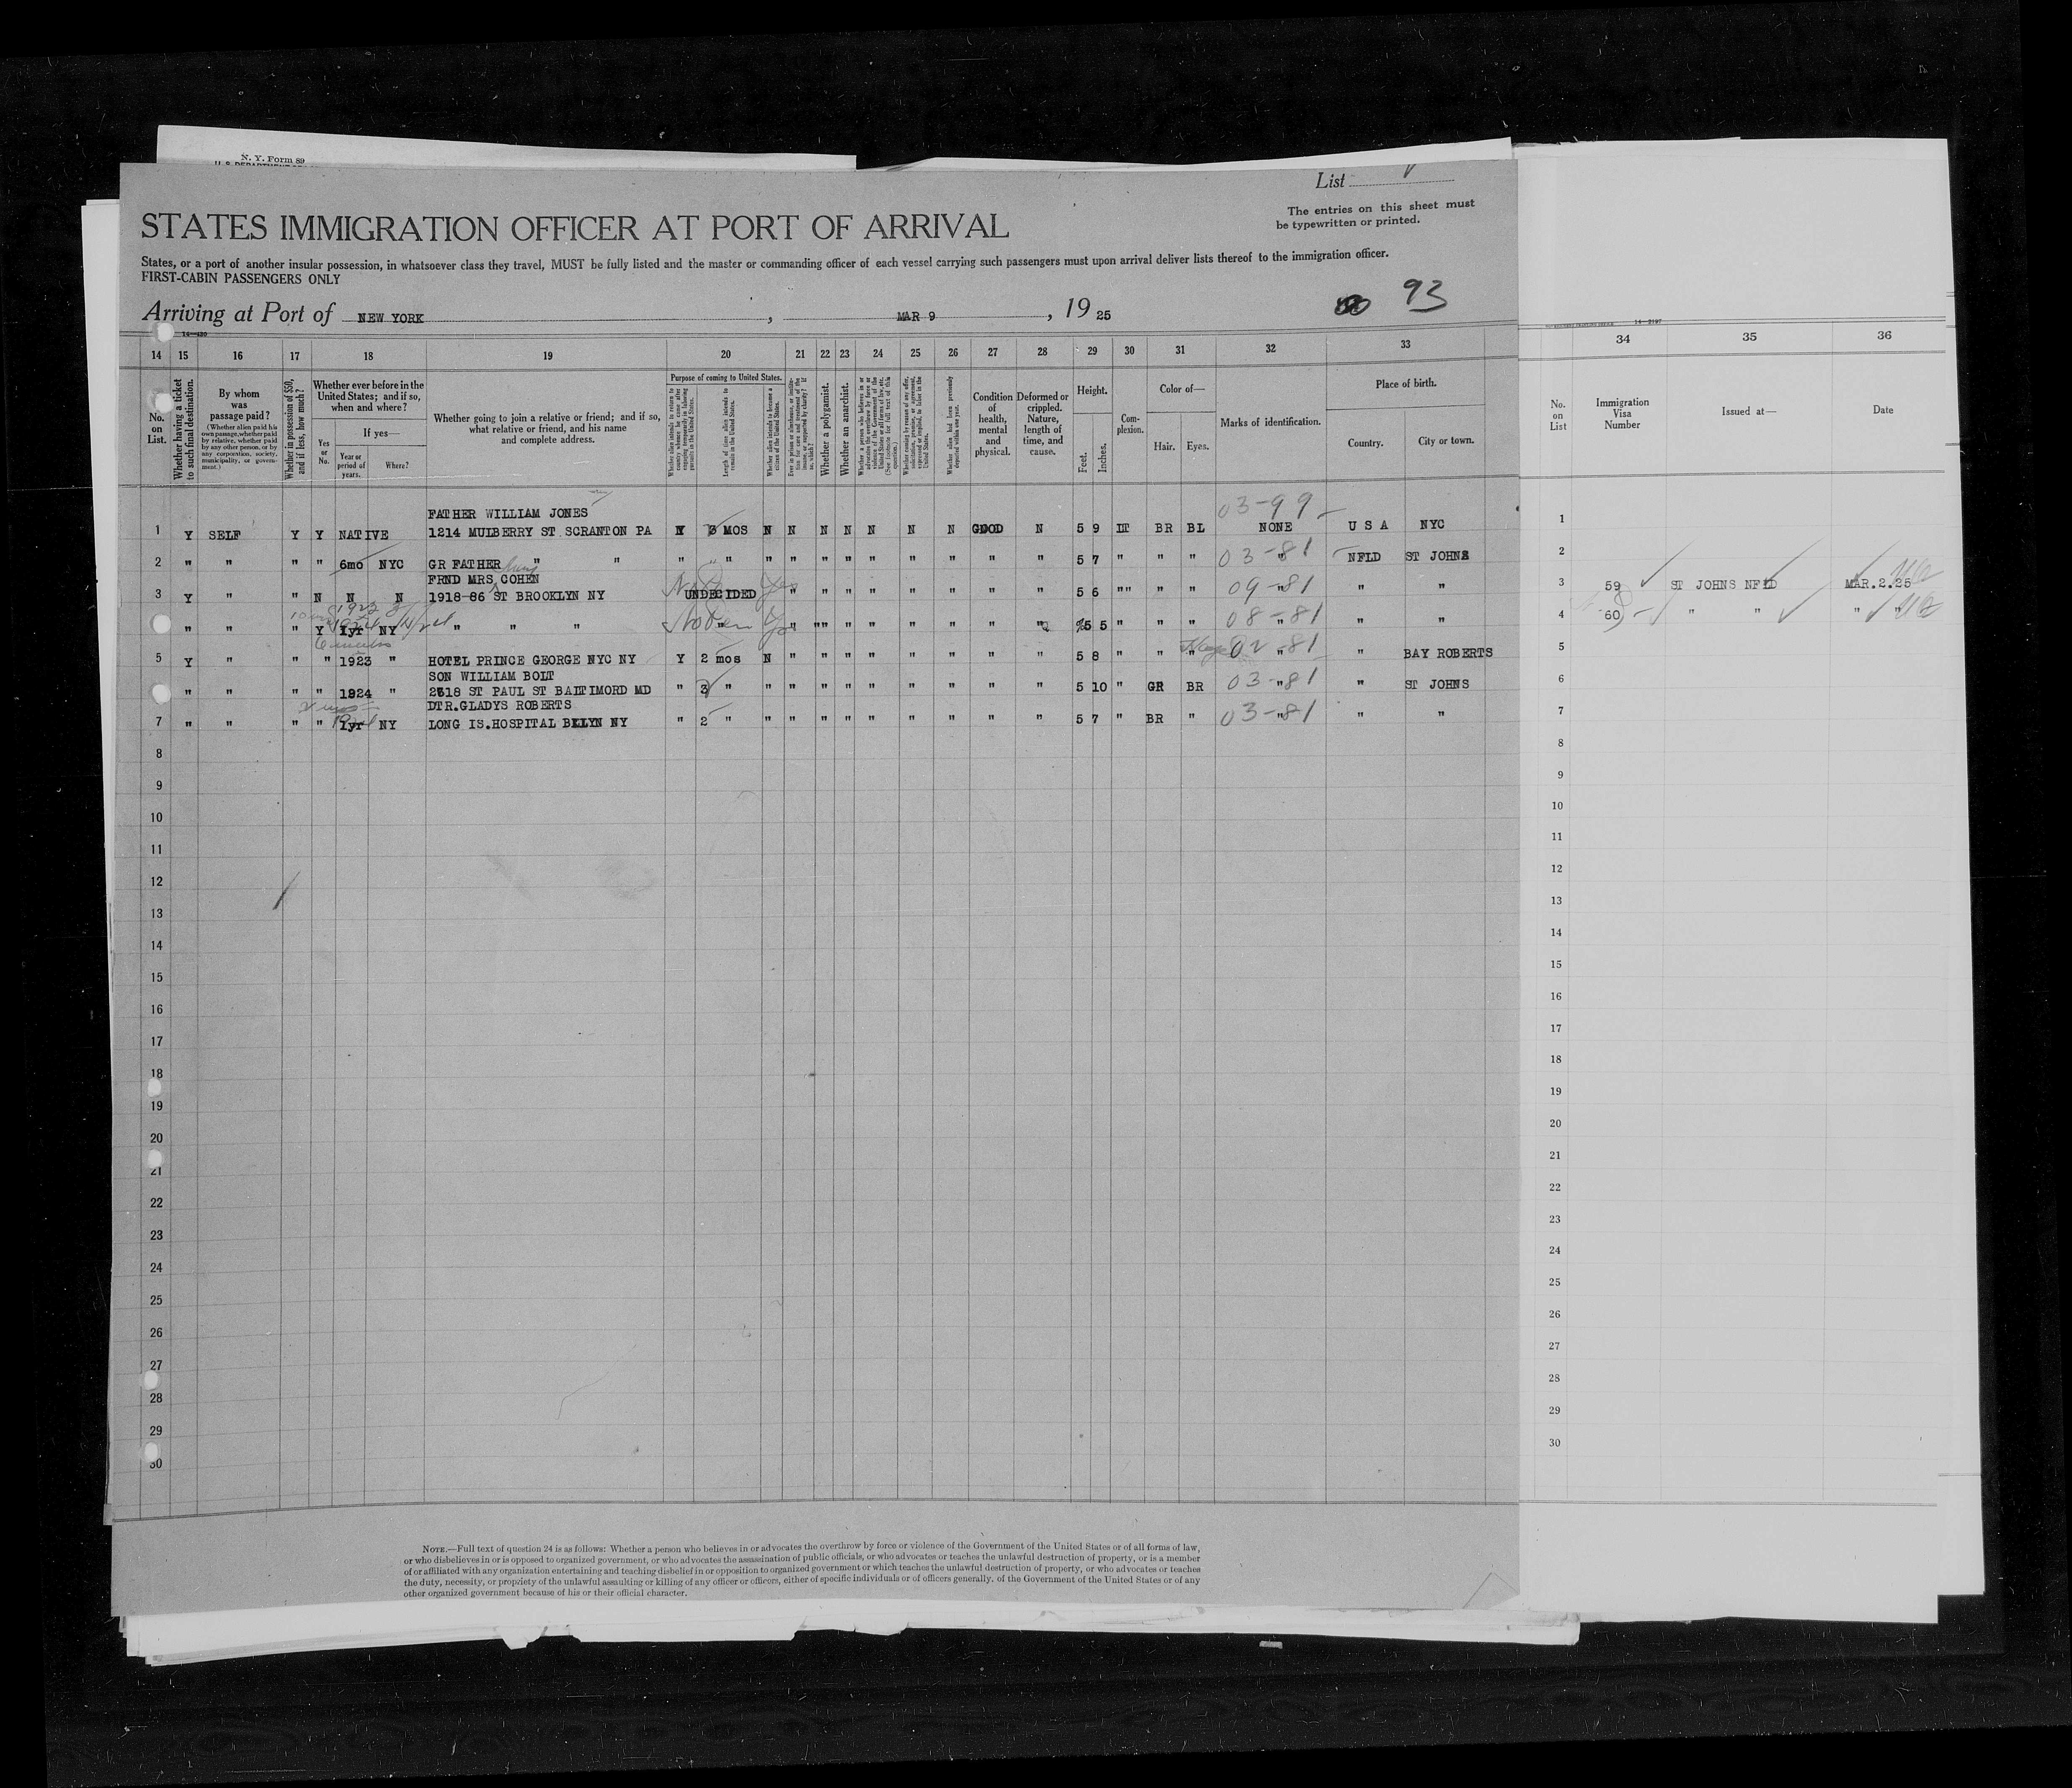 N. Y. Form 89
List
The entries on this sheet must
be typewritten or printed.
STATES IMMIGRATION OFFICER AT PORT OF ARRIVAL
States, or a port of another insular possession, in whatsoever class they travel, MUST be fully listed and the master or commanding officer of each vessel carrying such passengers must upon arrival deliver lists thereof to the immigration officer.
FIRST-CABIN PASSENGERS ONLY
93
Arriving at Port of NEW YORK , MAR 9 , 19 25
14 15 16 17 18 19 20 21 22 23 24 25 26 27 28 29 30 31 32 33 34 35 36
No. on List.
Whether having a ticket to such final destination.
By whom was passage paid?
(Whether alien paid his own passage, whether paid by relative, whether paid by any other person, or by any corporation, society, municipality, or government.)
Whether in possession of $50, and if less, how much?
Whether ever before in the United States; and if so, when and where?
Yes or No.
If yes—
Year or period of years.
Where?
Whether going to join a relative or friend; and if so, what relative or friend, and his name and complete address.
Purpose of coming to United States.
Length of time alien intends to remain in the United States.
Whether alien intends to become a citizen of the United States.
Whether a polygamist.
Whether an anarchist.
Whether alien had been previously deported within one year.
Condition of health, mental and physical.
Deformed or crippled. Nature, length of time, and cause.
Height.
Feet. Inches.
Complexion.
Color of—
Hair. Eyes.
Marks of identification.
Place of birth.
Country. City or town.
No. on List
Immigration Visa Number
Issued at—
Date
03-99
FATHER WILLIAM JONES
1 Y SELF Y Y NATIVE 1214 MULBERRY ST SCRANTON PA MOS N N N N N N N GOOD N 5 9 LT BR BL NONE U S A NYC
2 " " " " 6mo NYC GR FATHER " " " " " " " " " " " " " " 5 7 " " " 03-81 " NFLD ST JOHNS
FRND MRS COHEN
3 Y " " N N N 1918-86 ST BROOKLYN NY UNDECIDED Yes " " " " " " " " 5 6 "" " " 09-81 " " " 59 ST JOHNS NFLD MAR.2.25
1923
" " " Y 1yr NY " " " " " "" " " " " " " 5 5 " " " 08-81 " " " 60 " " " "
5 Y " " " 1923 " HOTEL PRINCE GEORGE NYC NY Y 2 mos N " " " " " " " " 5 8 " " " 02-81 " " BAY ROBERTS
SON WILLIAM BOLT
" " " " 1924 " 2518 ST PAUL ST BALTIMORD MD " 3 " " " " " " " " " " 5 10 " GR BR 03-81 " " ST JOHNS
DTR.GLADYS ROBERTS
7 " " " " 1yr NY LONG IS.HOSPITAL BKLYN NY " 2 " " " " " " " " " " 5 7 " BR " 03-81 " " "
8
9
10
11
12
13
14
15
16
17
18
19
20
21
22
23
24
25
26
27
28
29
30
NOTE.—Full text of question 24 is as follows: Whether a person who believes in or advocates the overthrow by force or violence of the Government of the United States or of all forms of law,
or who disbelieves in or is opposed to organized government, or who advocates the assassination of public officials, or who advocates or teaches the unlawful destruction of property, or is a member
of or affiliated with any organization entertaining and teaching disbelief in or opposition to organized government or which teaches the unlawful destruction of property, or who advocates or teaches
the duty, necessity, or propriety of the unlawful assaulting or killing of any officer or officers, either of specific individuals or of officers generally, of the Government of the United States or of any
other organized government because of his or their official character.